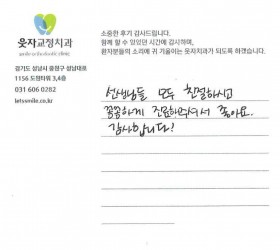 웃자교정치과
smile orthodontic clinic
경기도 성남시 중원구 성남대로
1156 도정타워 3,4층
031 606 0282
letssmile.co.kr
소중한 후기 감사드립니다.
함께 할 수 있었던 시간에 감사하며,
환자분들의 소리에 귀 기울이는 웃자치과가 되도록 하겠습니다.
선생님들 모두 친절하시고
꼼꼼하게 조언해주셔서 좋아요.
감사합니다!